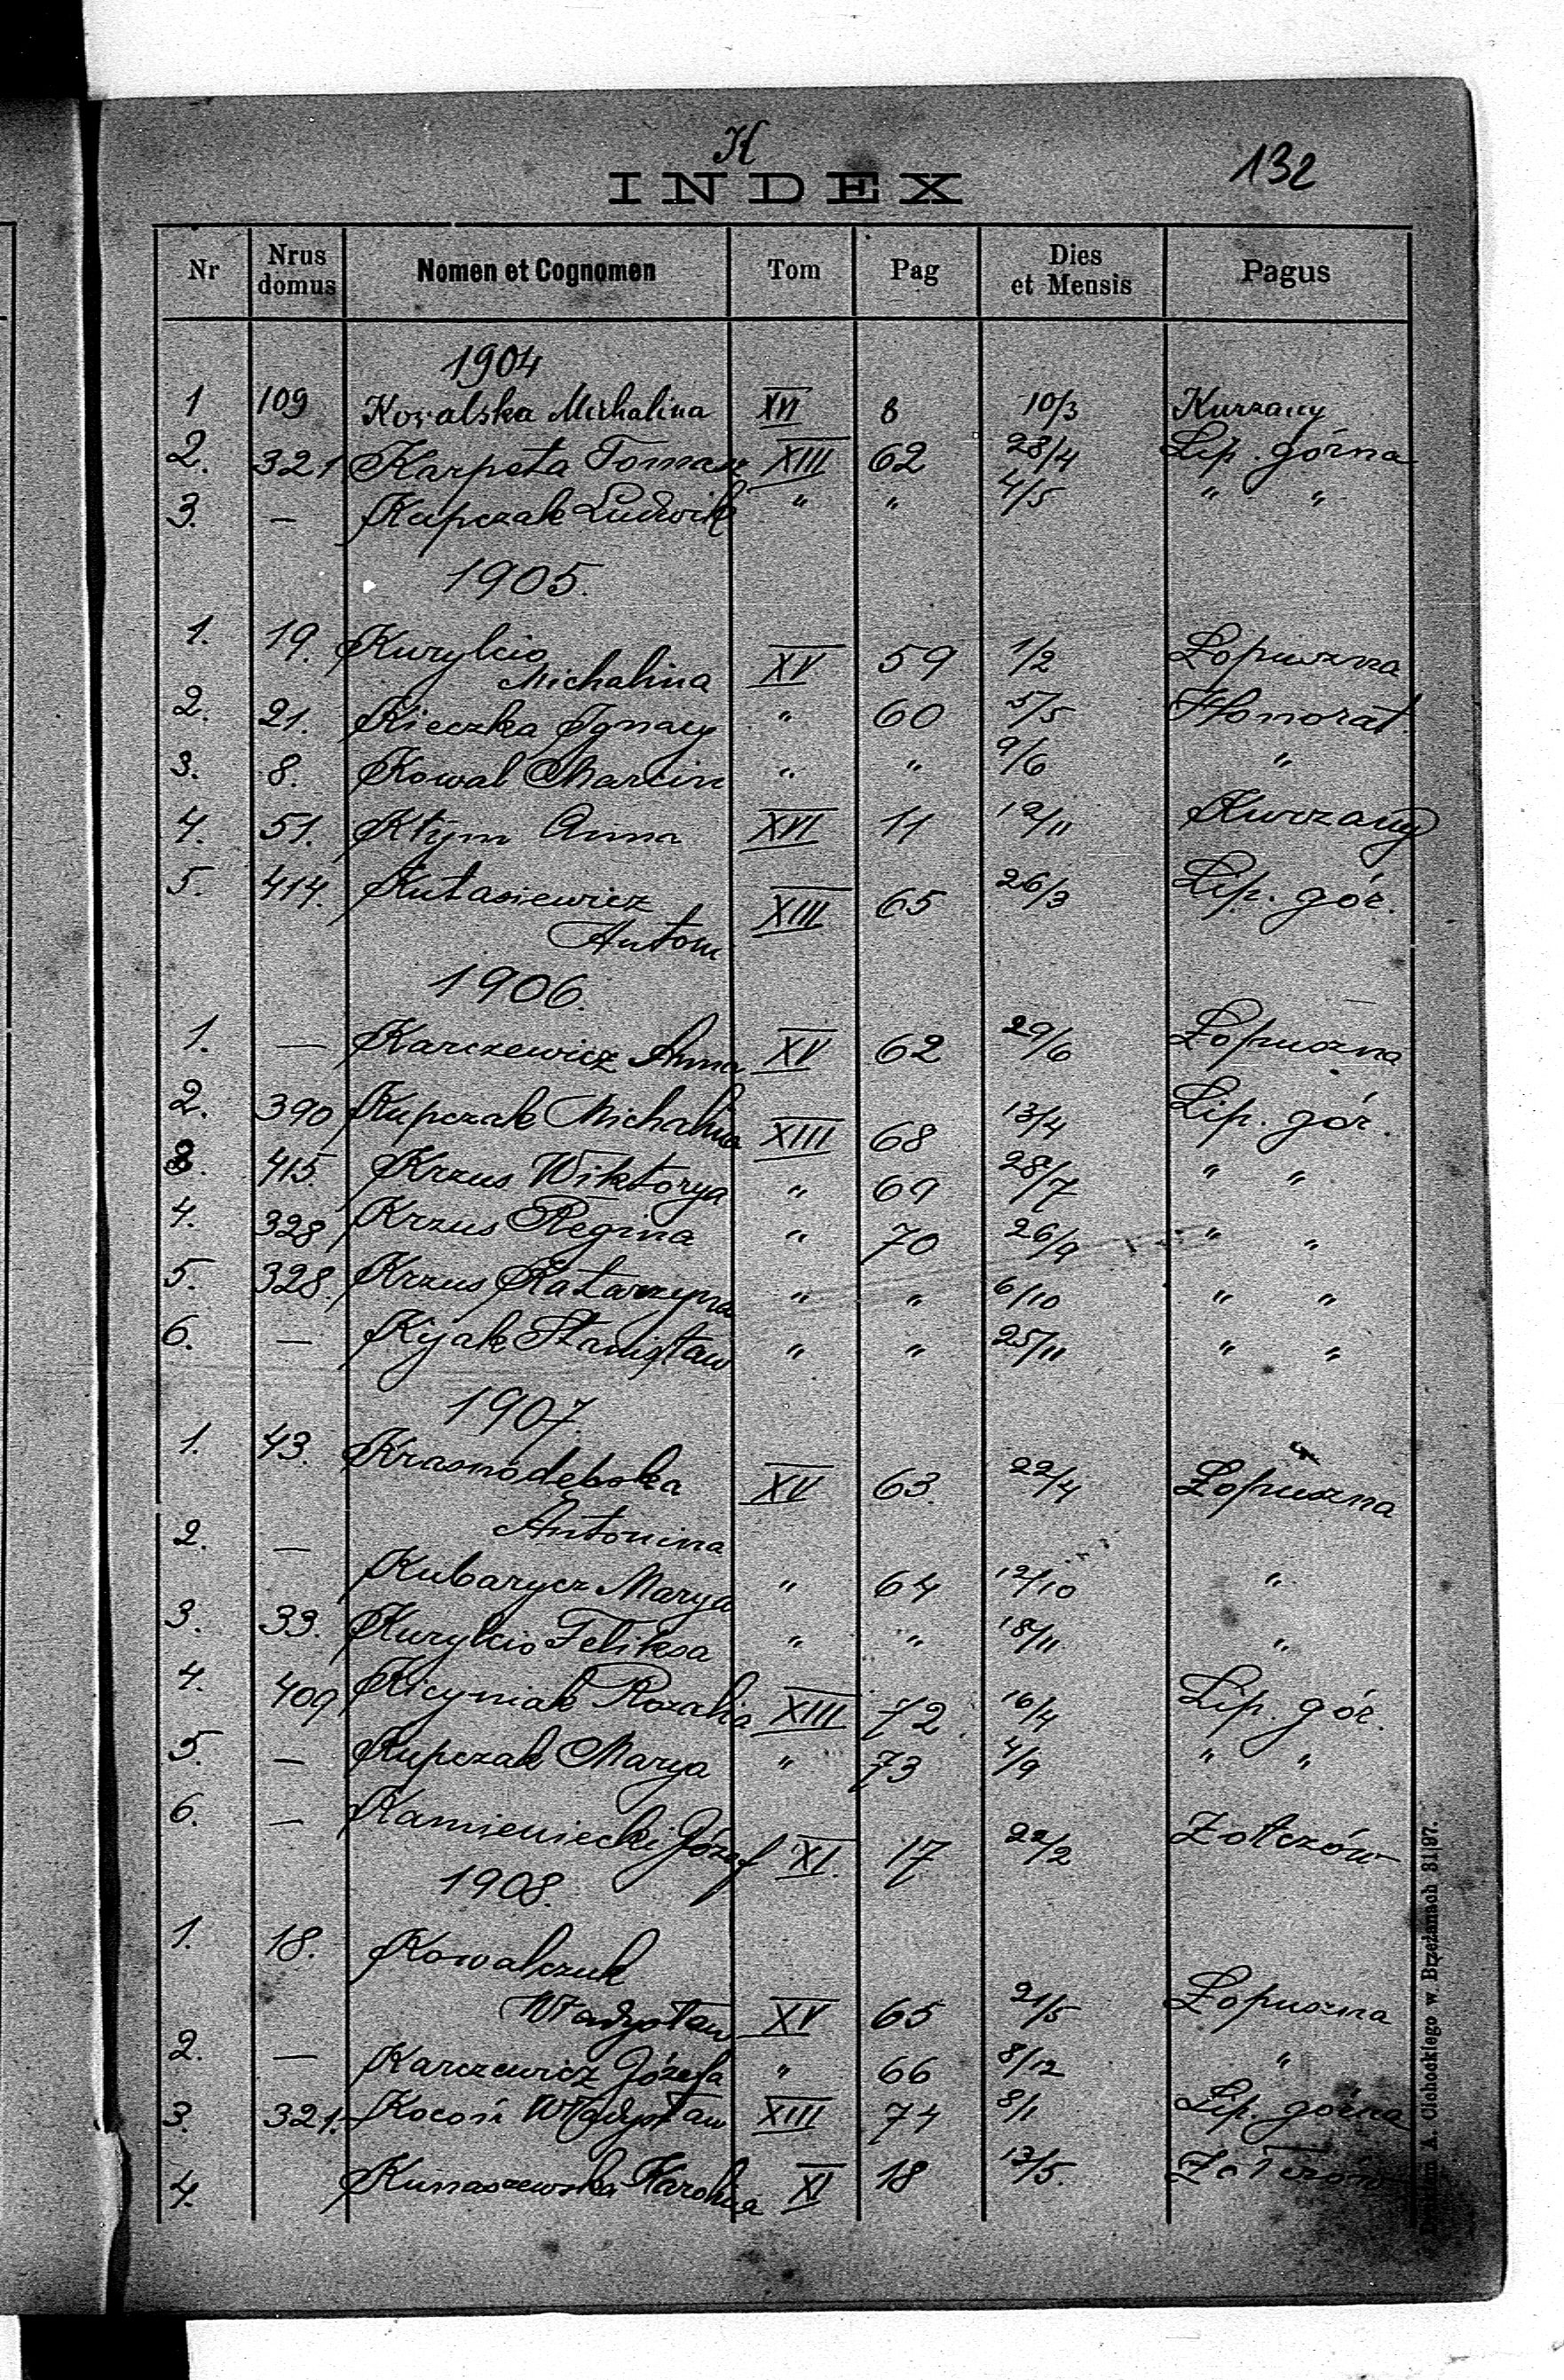 K
132
INDEX
Nr Nrus domus Nomen et Cognomen Tom Pag Dies et Mensis Pagus
1904
1 109 Kowalska Michalina XVI 8 10/3 Kurzany
2. 321 Karpeta Tomasz XIII 62 28/4 Lip. górna
3. — Kupczak Ludwik " " 4/5 " "
1905.
1. 19. Kuryłcio
Michalina XV 59 1/2 Łopuszna
2. 21. Kieczka Ignacy " 60 5/5 Honorat.
3. 8. Kowal Marcin " " 9/6 "
4. 51. Kłym Anna XVI 11 12/11 Kurzany
5. 414. Kutasiewicz
Antoni XIII 65 26/3 Lip. gór.
1906.
1. — Karczewicz Anna XV 62 29/6 Łopuszna
2. 390 Kupczak Michalina XIII 68 13/4 Lip. gór.
3. 415. Krzus Wiktorya " 69 28/7 " "
4. 328 Krzus Regina " 70 26/9 " "
5. 328. Krzus Katarzyna " " 6/10 " "
6. — Kijak Stanisław " " 25/11 " "
1907.
1. 43. Krasnodębska
Antonina XV 63. 22/4 Łopuszna
2. — Kubarycz Marya " 64 12/10 "
3. 33. Kuryłcio Feliksa " " 18/11 "
4. 409 Kicyniak Rozalia XIII 72. 16/4 Lip. gór.
5. — Kupczak Marya " 73 4/9 " "
6. — Kamieniecki Józef XI. 17 22/2 Żołczów
1908.
1. 18. Kowalczuk
Władysław XV 65 21/5 Łopuszna
2. — Karczewicz Józefa " 66 8/12 "
3. 321. Kocoń Władysław XIII 74 8/1 Lip. górna
4. Kunaszewska Karolina XI 18 13/5. Żołczów
A. Cichockiego w Brzeżanach 31|97.